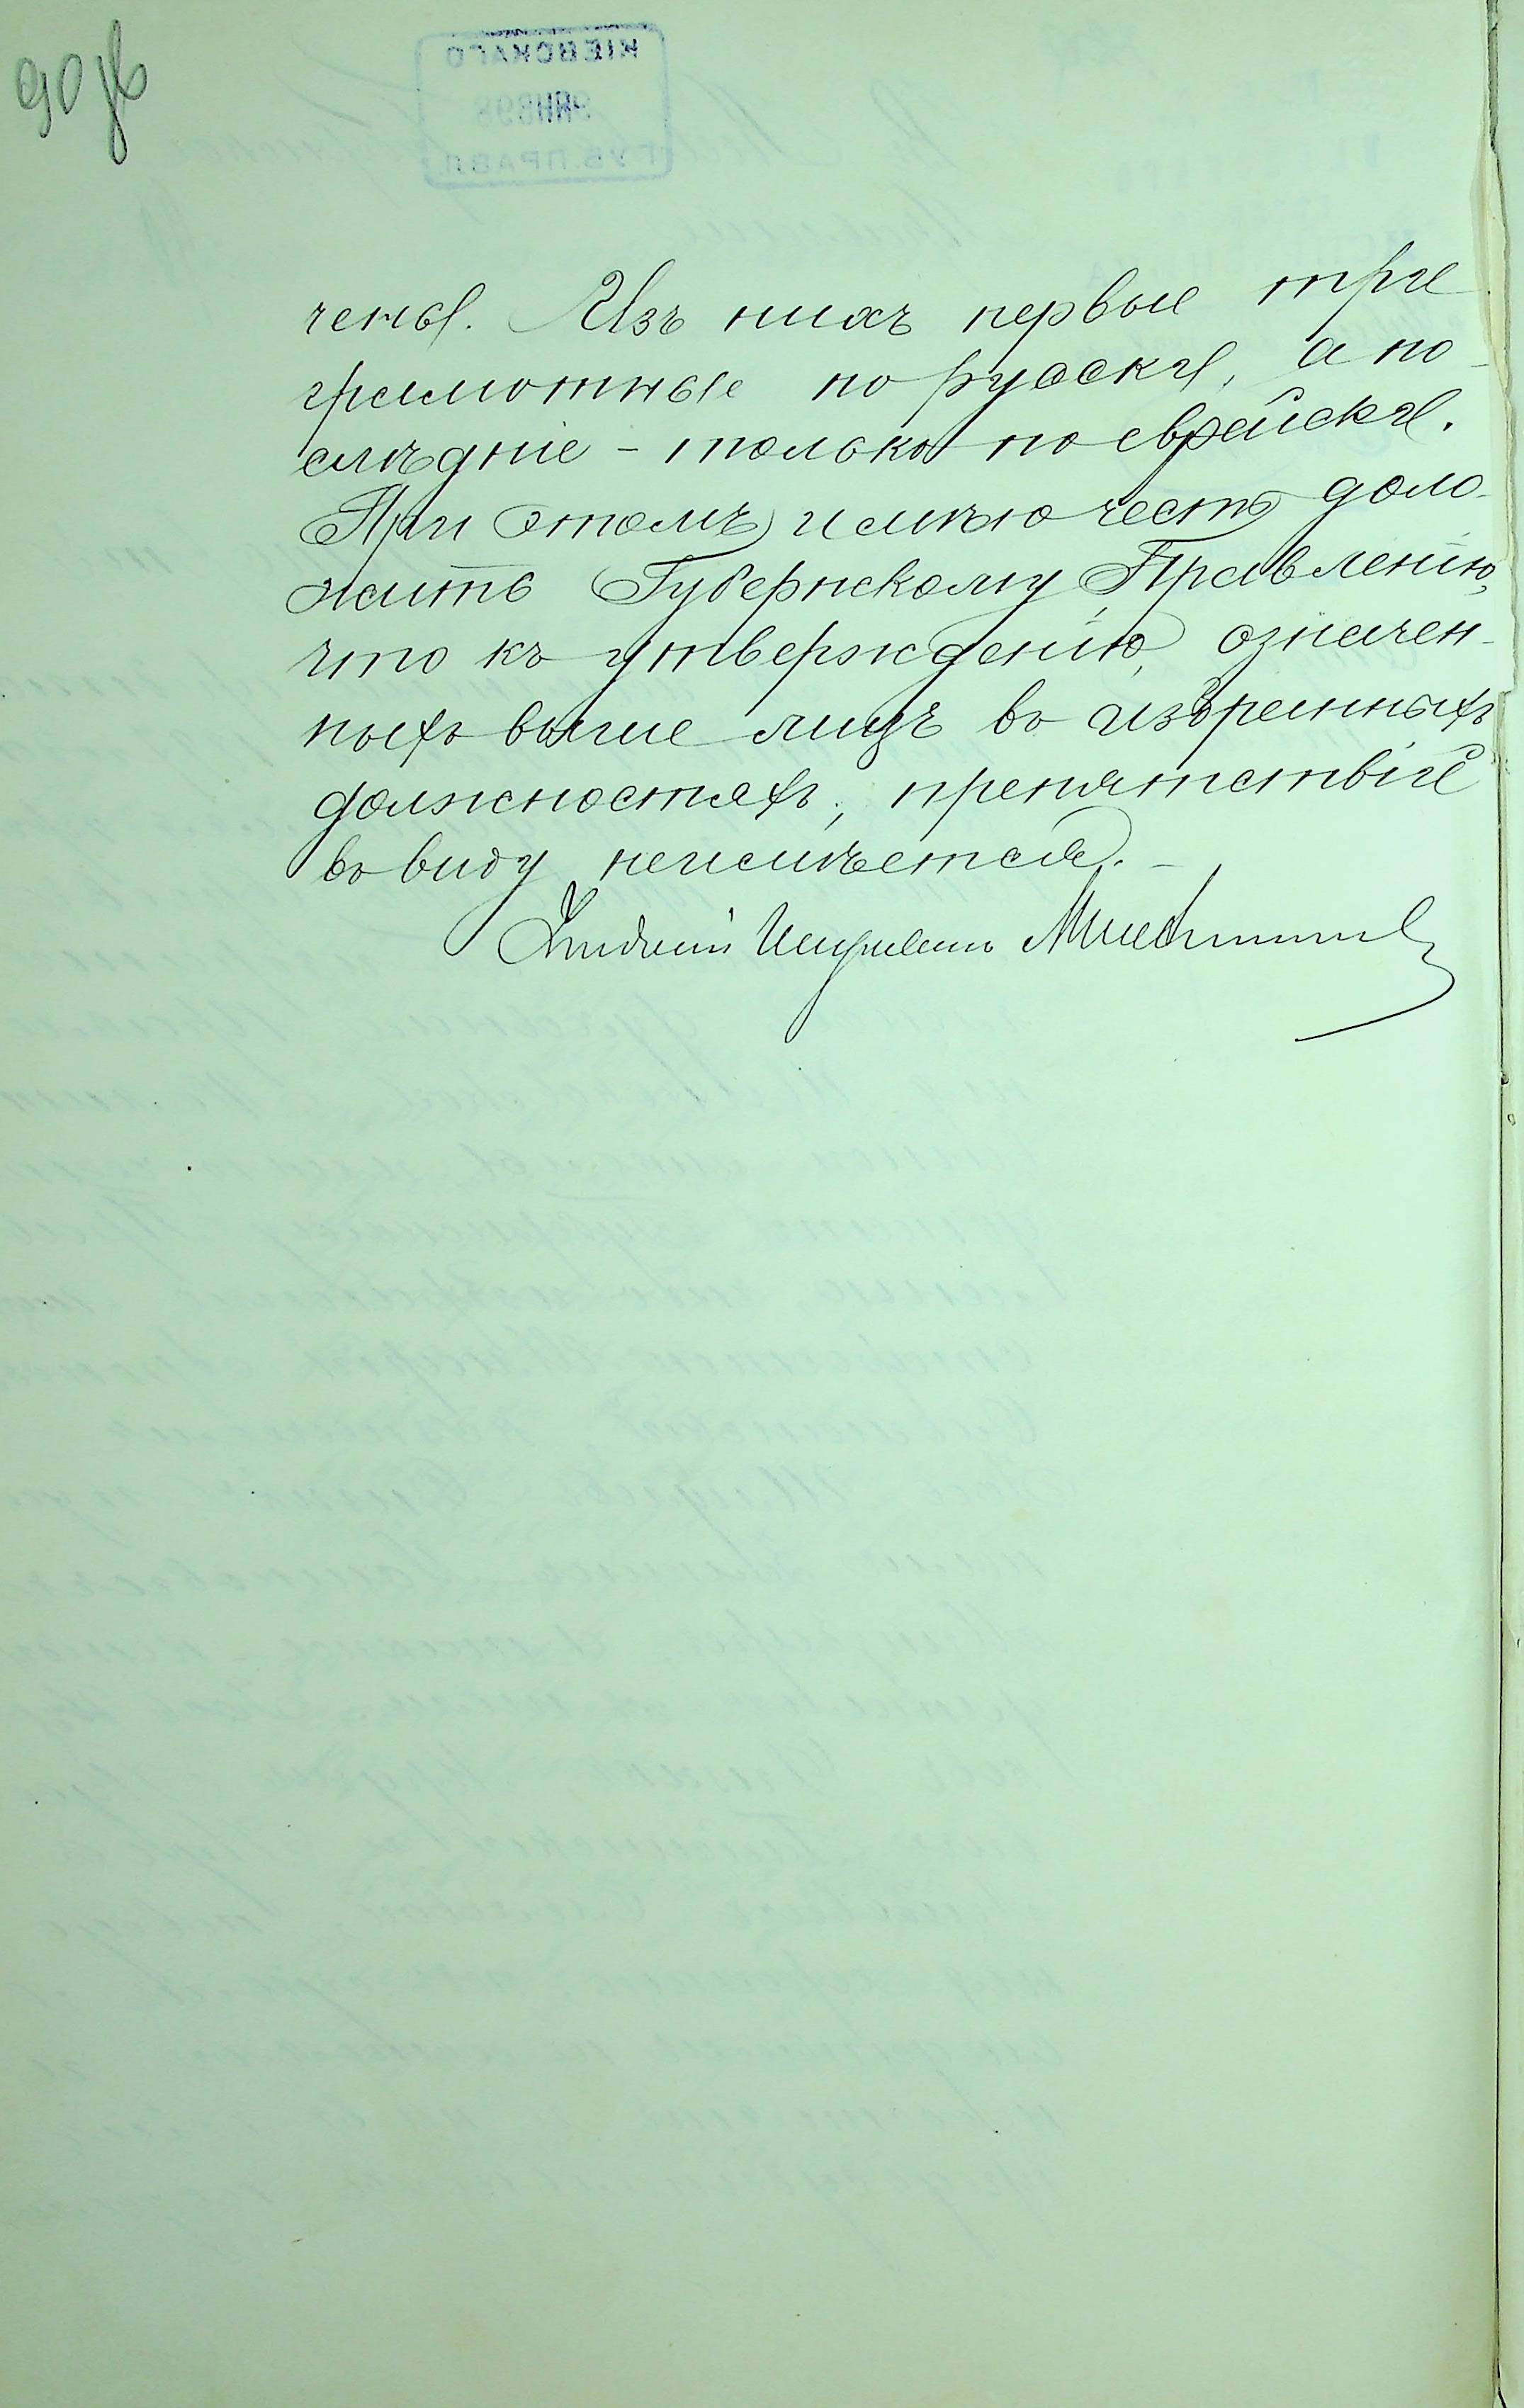 90 об
чены. Изъ нихъ первые три
грамотные по русски, а по-
слѣдніе - только по еврейски.
При этомъ имѣю честь доло-
жить Губернскому Правленію,
что къ утвержденію означен-
ныхъ выше лицъ въ избранныхъ
должностяхъ, препятствій
въ виду неимѣется. -
Уѣздный Исправникъ